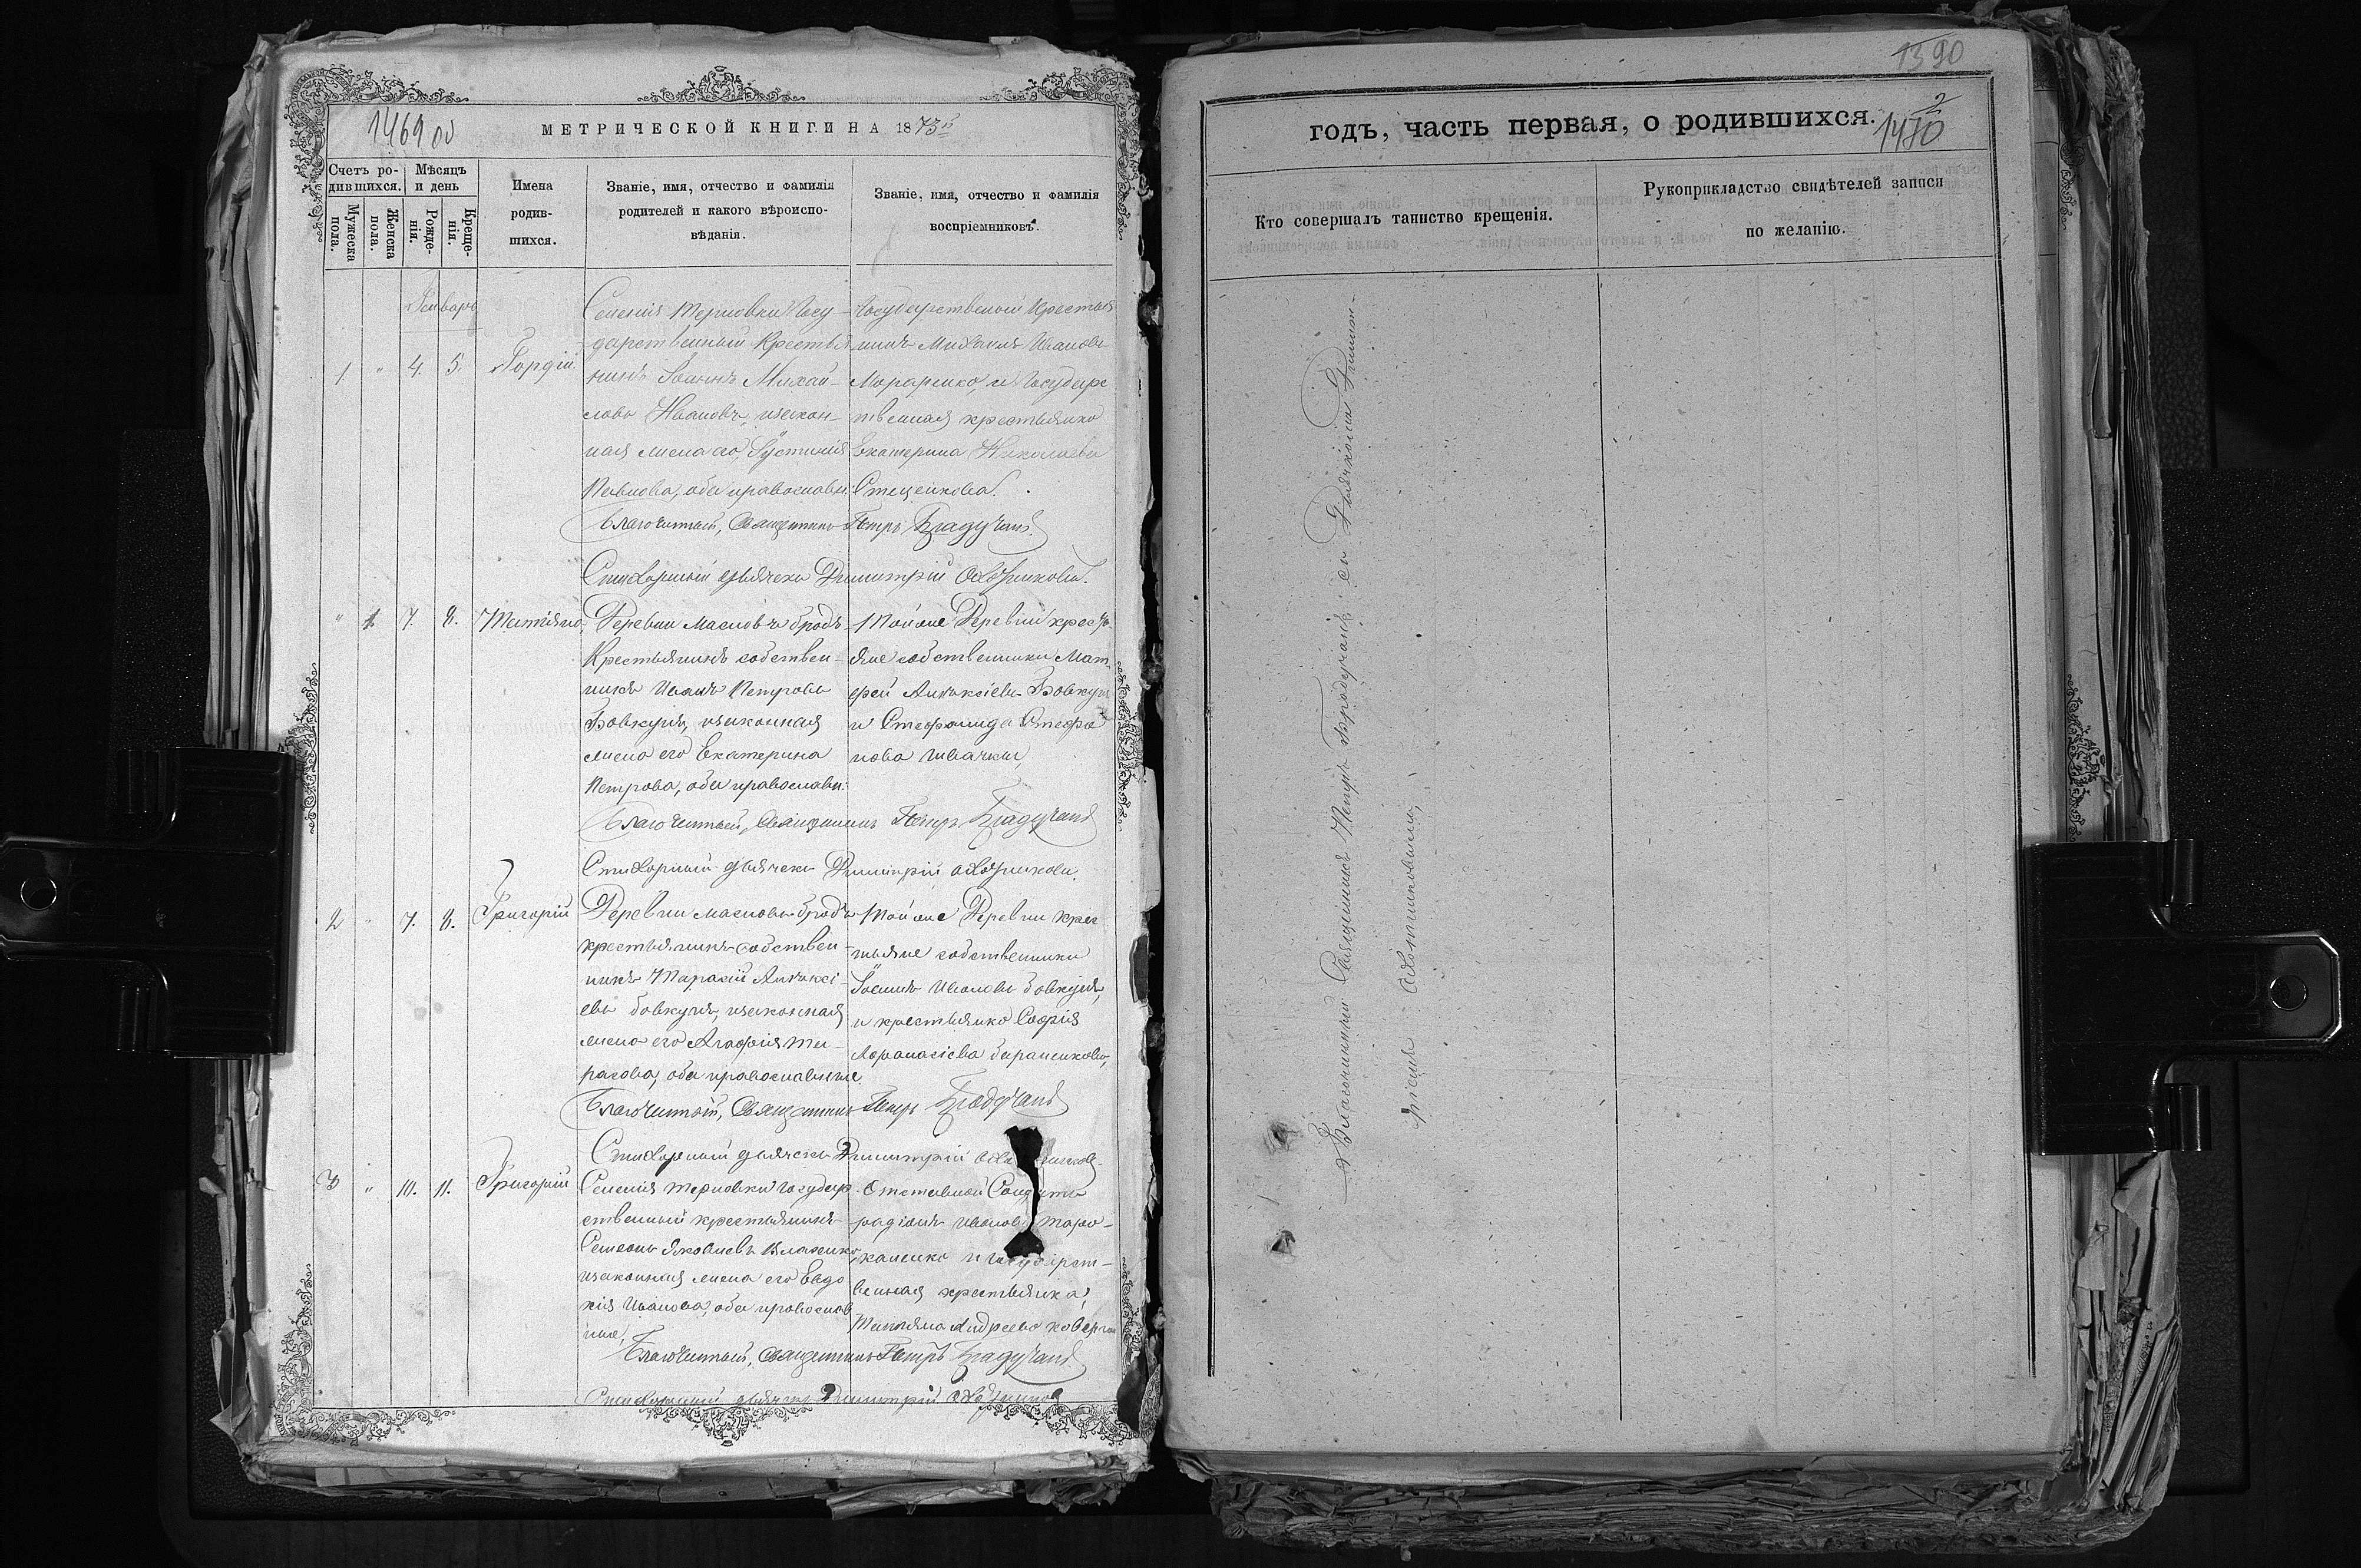 1469 об
МЕТРИЧЕСКОЙ КНИГИ НА 1873й
Счетъ ро-
дившихся.
Мѣсяцъ
и день
Мужеска
пола.
Женска
пола.
Рожде-
нія.
Креще-
нія.
Имена
родив-
шихся.
Званіе, имя, отчество и фамилія
родителей и какого вѣроиспо-
вѣданія.
Званіе, имя, отчество и фамилія
воспріемниковъ.
Январь
1 " 4. 5. Гордій
Селенія Терновки Госу-
дарственный Крестья
нинъ Іоаннъ Михай-
ловъ Ивановъ, изакон-
ная жена его, Іустинія
Павлова, оба православн:
Государственный Крестья
нинъ Михаилъ Ивановъ
и Государс
твенная крестьянка
Екатерина Николаева
Стеценкова.
Благочинный, Священникъ Петръ
Стихарный дьячекъ Димитрій
" 1. 7. 8. Татіяна
Деревни Масловъ бродъ
Крестьянинъ собствен-
никъ Иванъ Петровъ
Бовкунъ, изаконная
жена его Екатерина
Петрова, оба православн:
Тойже Деревни крест
яне собственники Мат
фей Алѣксіевъ Бовкунъ
и Стефанида Стефа
нова
Благочинный, Священникъ Петръ
Стихарный дьячекъ Димитрій
2 " 7. 8. Григорій
Деревни Масловъ бродъ
крестьянинъ собствен-
никъ Тарасій Алѣксі-
евъ бовкунъ, изаконная
жена его Агафія Та-
расова, оба православные
Тойже Деревни крес
тьяне собственники
Іоаннъ Ивановъ бовкунъ,
и крестьянка Софія
Афанасіева баранникова,
Благочинный, Священникъ Петръ
Стихарный дьячекъ Димитрій
3 " 10. 11. Григорій
Селенія Терновки Государ
ственный крестьянинъ
Семеонъ Яковлевъ
изаконная жена его Евдо
кія Иванова, оба православ
ные,
Отставной Солдатъ
радіонъ Ивановъ Тара-
каненко и Государст-
венная крестьянка,
Татіяна Андреева
Благочинный, Священникъ Петръ
Стихарный дьячекъ Димитрій
1390
годъ, часть первая, о родившихся.
1470
Кто совершалъ таинство крещенія.
Рукоприкладство свидѣтелей записи
по желанію.
Благочинный Священникъ Петръ съ Дьячкомъ Димит-
ріемъ